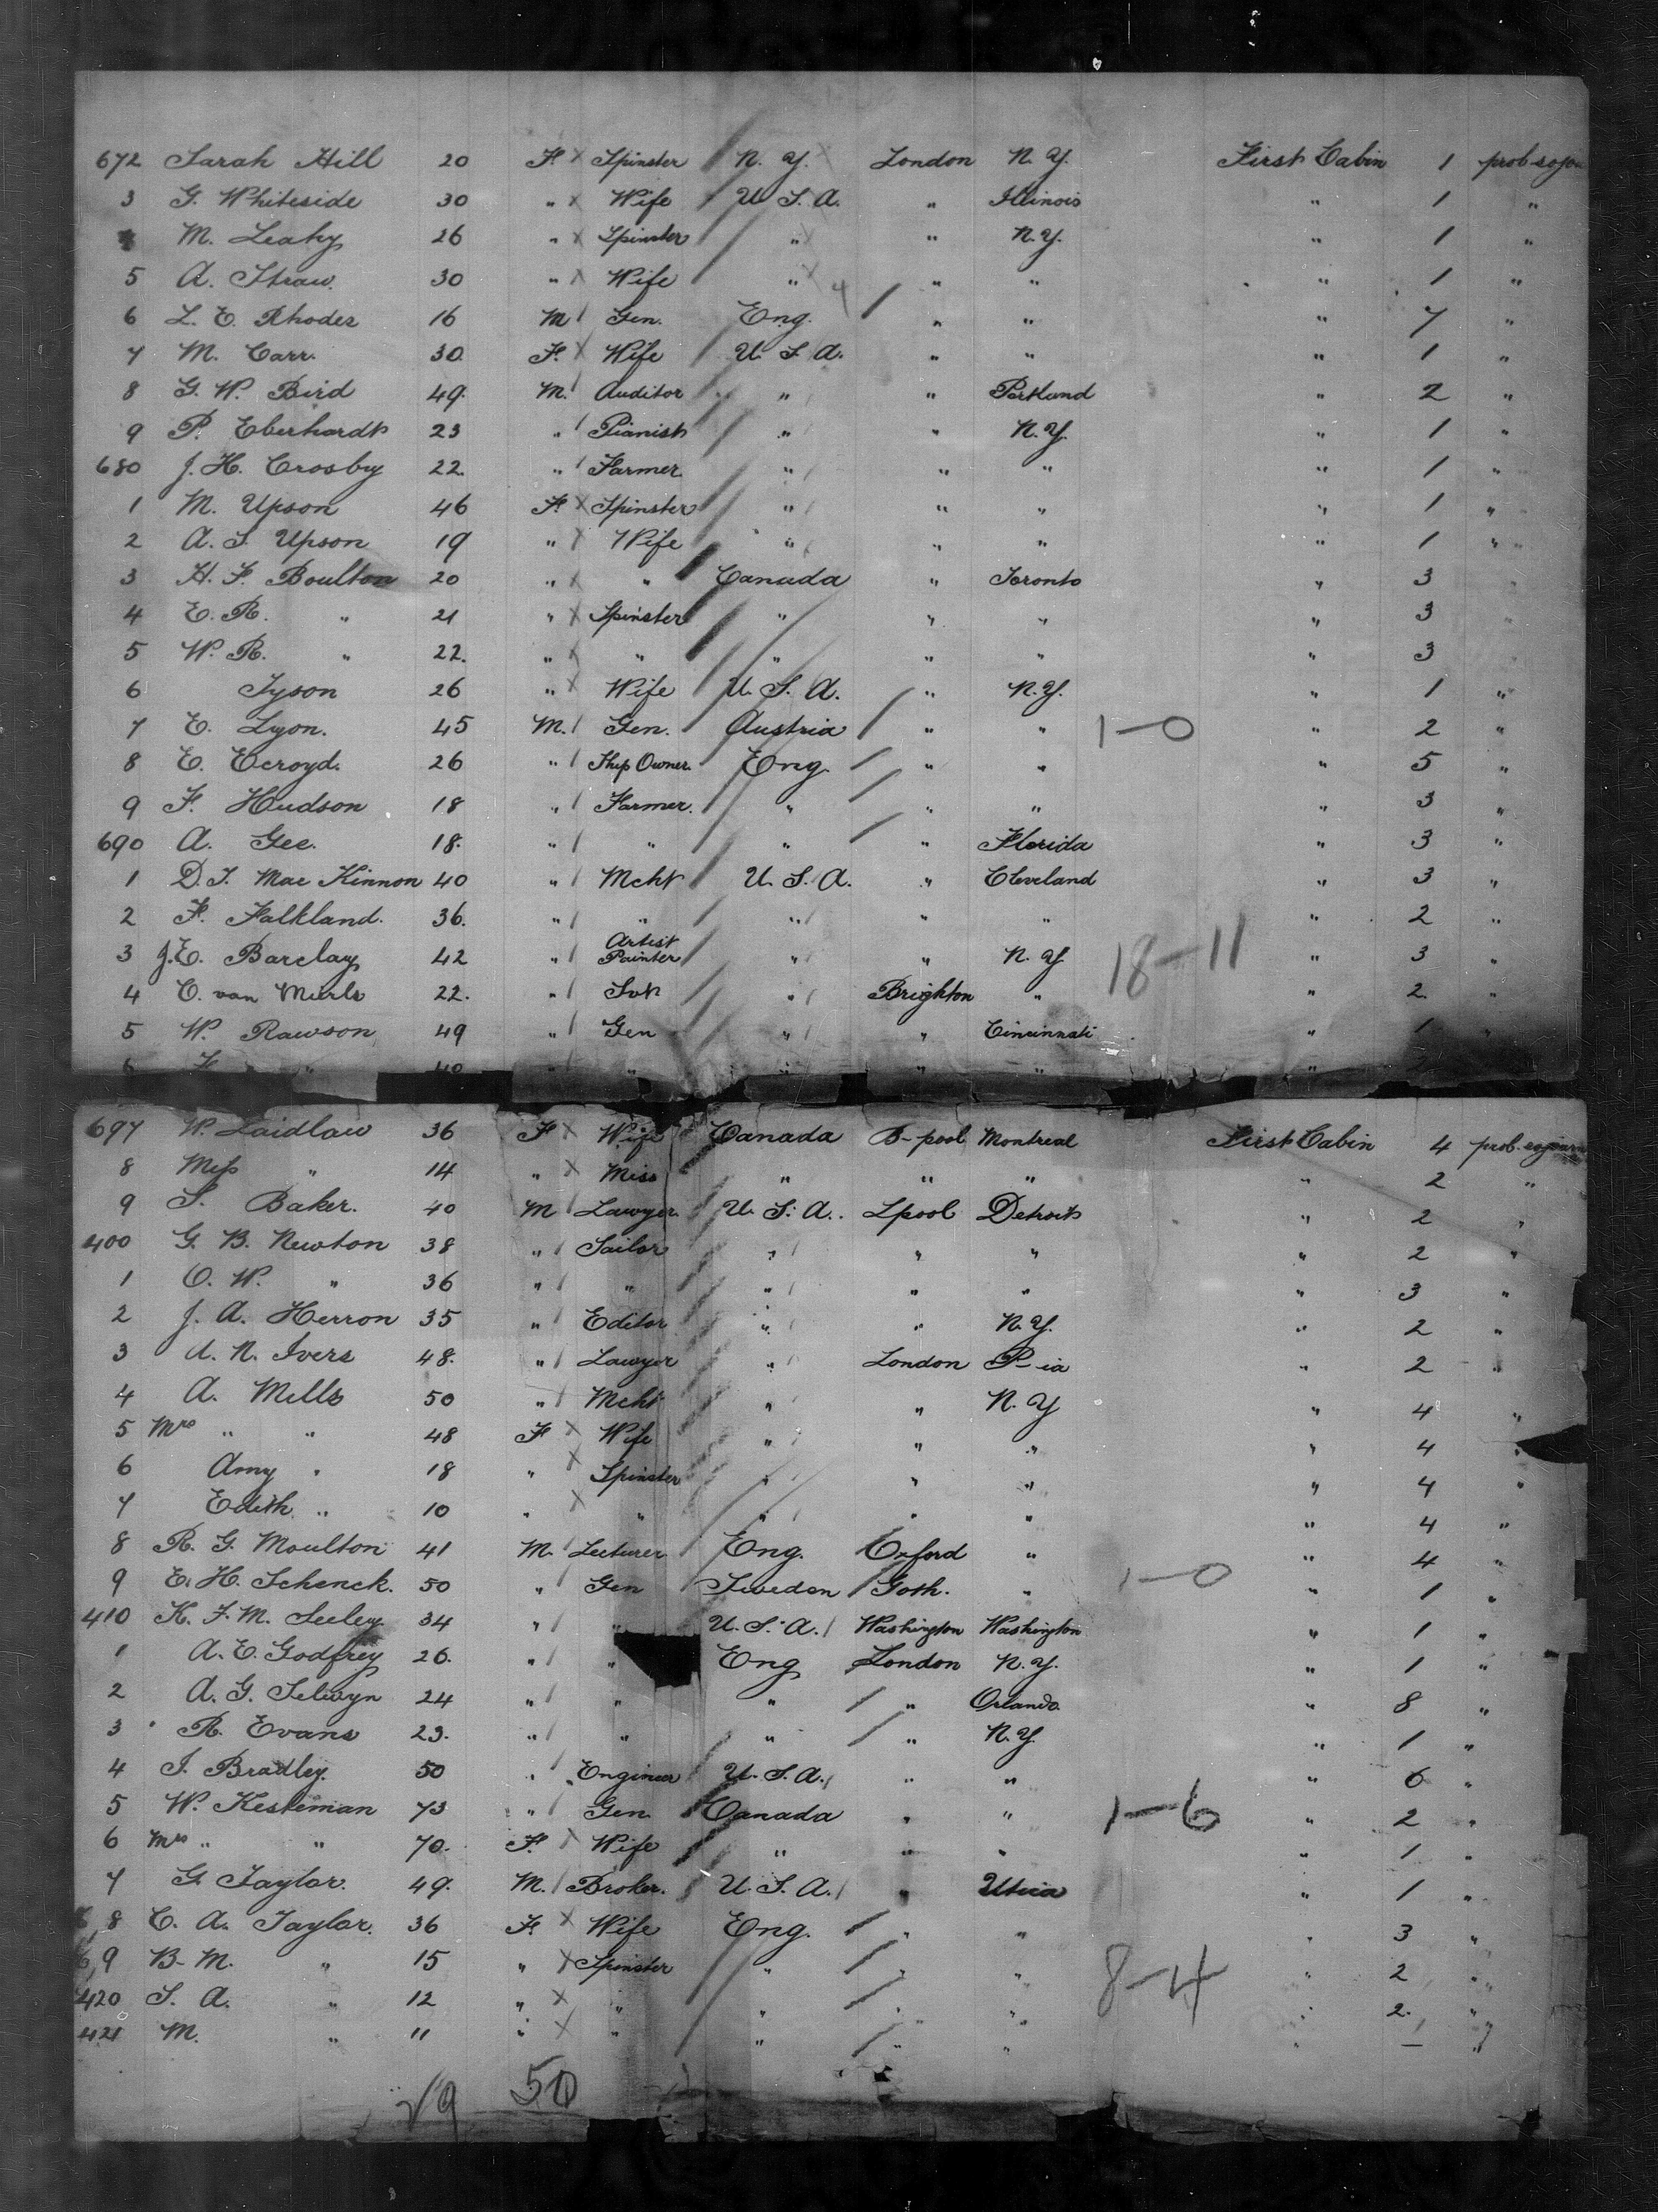 672 Sarah Hill 20 F. X Spinster / N. Y. X London N. Y. First Cabin 1 prob sojou
3 G. Whiteside 30 " X Wife / U S. A. " Illinois " 1 "
M. Leahy 26 " X Spinster / " " N. Y. " 1 "
5 A. Straw. 30 " X Wife " X " " " 1 "
6 L. E. Rhodes 16 M / Gen. Eng. 4 / " " " 7 "
7 M. Carr. 30. F. X Wife / U. S. A. " " " 1 "
8 G. W. Bird 49. M. / Auditor " / " Portland " 2 "
9 P. Eberhardt 23 " / Pianist / " " N. Y. " 1 "
680 J. H. Crosby 22. " / Farmer. / " / " " " 1 "
1 M. Upson 46 F. X Spinster / " / " " " 1 "
2 A. S. Upson 19 " X Wife / " / " " " 1 "
3 H. F. Boulton 20 " X " / Canada " Toronto " 3 "
4 E. R. " 21 " X Spinster / " " " " 3 "
5 W. R. " 22. " X " / " " " " 3 "
6 Tyson 26 " X Wife / U. S. A. " N. Y. " 1 "
7 E. Lyon. 45 M. / Gen. / Austria / " " 1-0 " 2 "
8 E. Ecroyd. 26 " / Ship Owner. / Eng. / " " " 5 "
9 F. Hudson 18 " / Farmer. / " / " " " 3 "
690 A. Gee. 18. " / " / " / " Florida " 3 "
1 D. S. Mac Kinnon 40 " / Mcht U. S. A. " Cleveland " 3 "
2 F. Falkland. 36. " / " / " / " " " 2 "
Artist
3 J. E. Barclay 42 " / Painter / " " N. Y. 18-11 " 3 "
4 C. van 22. " / " / Brighton " " 2. "
5 W. Rawson 49 " / Gen " / " Cincinnati " 1 "
6 F. " 40 " " " " " 2
697 W. Laidlaw 36 F X Wife Canada B-pool Montreal First Cabin 4 prob. sojourn
8 Miss " 14 " X Miss " " " " 2 "
9 S. Baker. 40 M / Lawyer. / U. S. A. Lpool Detroit " 2 "
400 G. B. Newton 38 " / Sailor / " / " " " 2 "
1 O. W. " 36 " / " / " / " " " 3 "
2 J. A. Herron 35 " / Editor " / " N. Y. " 2 "
3 A. N. Ivers 48. " / Lawyer / " / London P-ia " 2 "
4 A. Mills 50 " / Mcht / " / " N. Y " 4 "
5 Mrs " " 48 F X Wife / " / " " " 4 "
6 Amy " 18 " X Spinster / " / " " " 4 "
7 Edith " 10 " X " / " / " " " 4 "
8 R. G. Moulton 41 M. / Lecturer / Eng. / Oxford " " 4 "
9 E. H. Schenck. 50 " / Gen / Sweden / Goth. " 1-0 " 1 "
410 K. F. M. Seeley 34 " / " U. S. A. / Washington Washington " 1 "
1 A. E. Godfrey 26. " / " Eng London N. Y. " 1 "
2 A. G. Selwyn 24 " / " " / " Orlando. " 8 "
3 R. Evans 23. " / " " / " N. Y. " 1 "
4 I. Bradley. 50 " / Engineer / U. S. A. / " " " 6 "
5 W. Kesteman 73 " / Gen. / Canada " " 1-6 " 2 "
6 Mrs " " 70. F. X Wife / " " " " 1 "
7 G. Taylor. 49. M. / Broker. / U. S. A. / " Utica " 1 "
8 C. A. Taylor. 36 F. X Wife Eng. / " " " 3 "
9 B. M. " 15 " X Spinster / " / " " 8-4 " 2 "
420 S. A. " 12 " X " / " / " " " 2. "
421 M. " 11 " X " / " / " " " - "
29 50